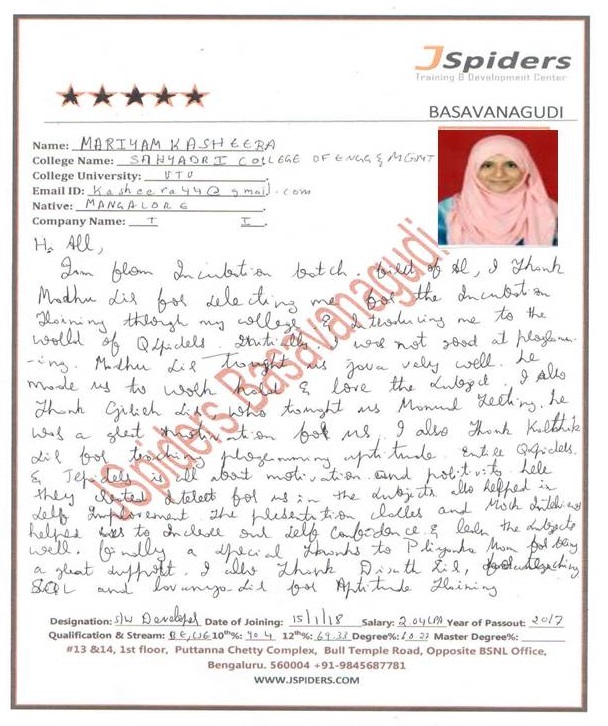 JSpiders
Training & Development Center
BASAVANAGUDI
Name: MARIYAM KASHEERA
College Name: SAHYADRI COLLEGE OF ENGG & MGMT
College University: VTU
Email ID: kasheera44@gmail.com
Native: MANGALORE
Company Name: T I.
Hi All,
I am from Incubation batch. First of all, I Thank
Madhu Sir for selecting me for the Incubation
Training through my college & Introducing me to the
world of QSpiders. Initially I was not good at programm-
-ing. Madhu Sir taught us java very well. he
made us to work hard & love the subject, I also
Thank Girish Sir, who taught us Manual Testing. he
was a great motivation for us, I also Thank Karthik
Sir for teaching programming aptitude. Entire QSpiders
& JSpiders is all about motivation and positivity here
they created interest for us in the subjects also helped in
self Improvement. The presentation classes and Mock Interviews
helped us to Increase our self confidence & learn the subjects
well. finally a special Thanks to Priyanka Mam for being
a great support. I also Thank Sir, for teaching
SQL and Sir for Aptitude Training
JSpiders Basavanagudi
Designation: S/W Developer Date of Joining: 15/1/18 Salary: 2.04LPA Year of Passout: 2017
Qualification & Stream: BE, 10th%: 90.4 12th%: 69.33 Degree%: 60.27 Master Degree%:
#13 &14, 1st floor, Puttanna Chetty Complex, Bull Temple Road, Opposite BSNL Office,
Bengaluru. 560004 +91-9845687781
WWW.JSPIDERS.COM